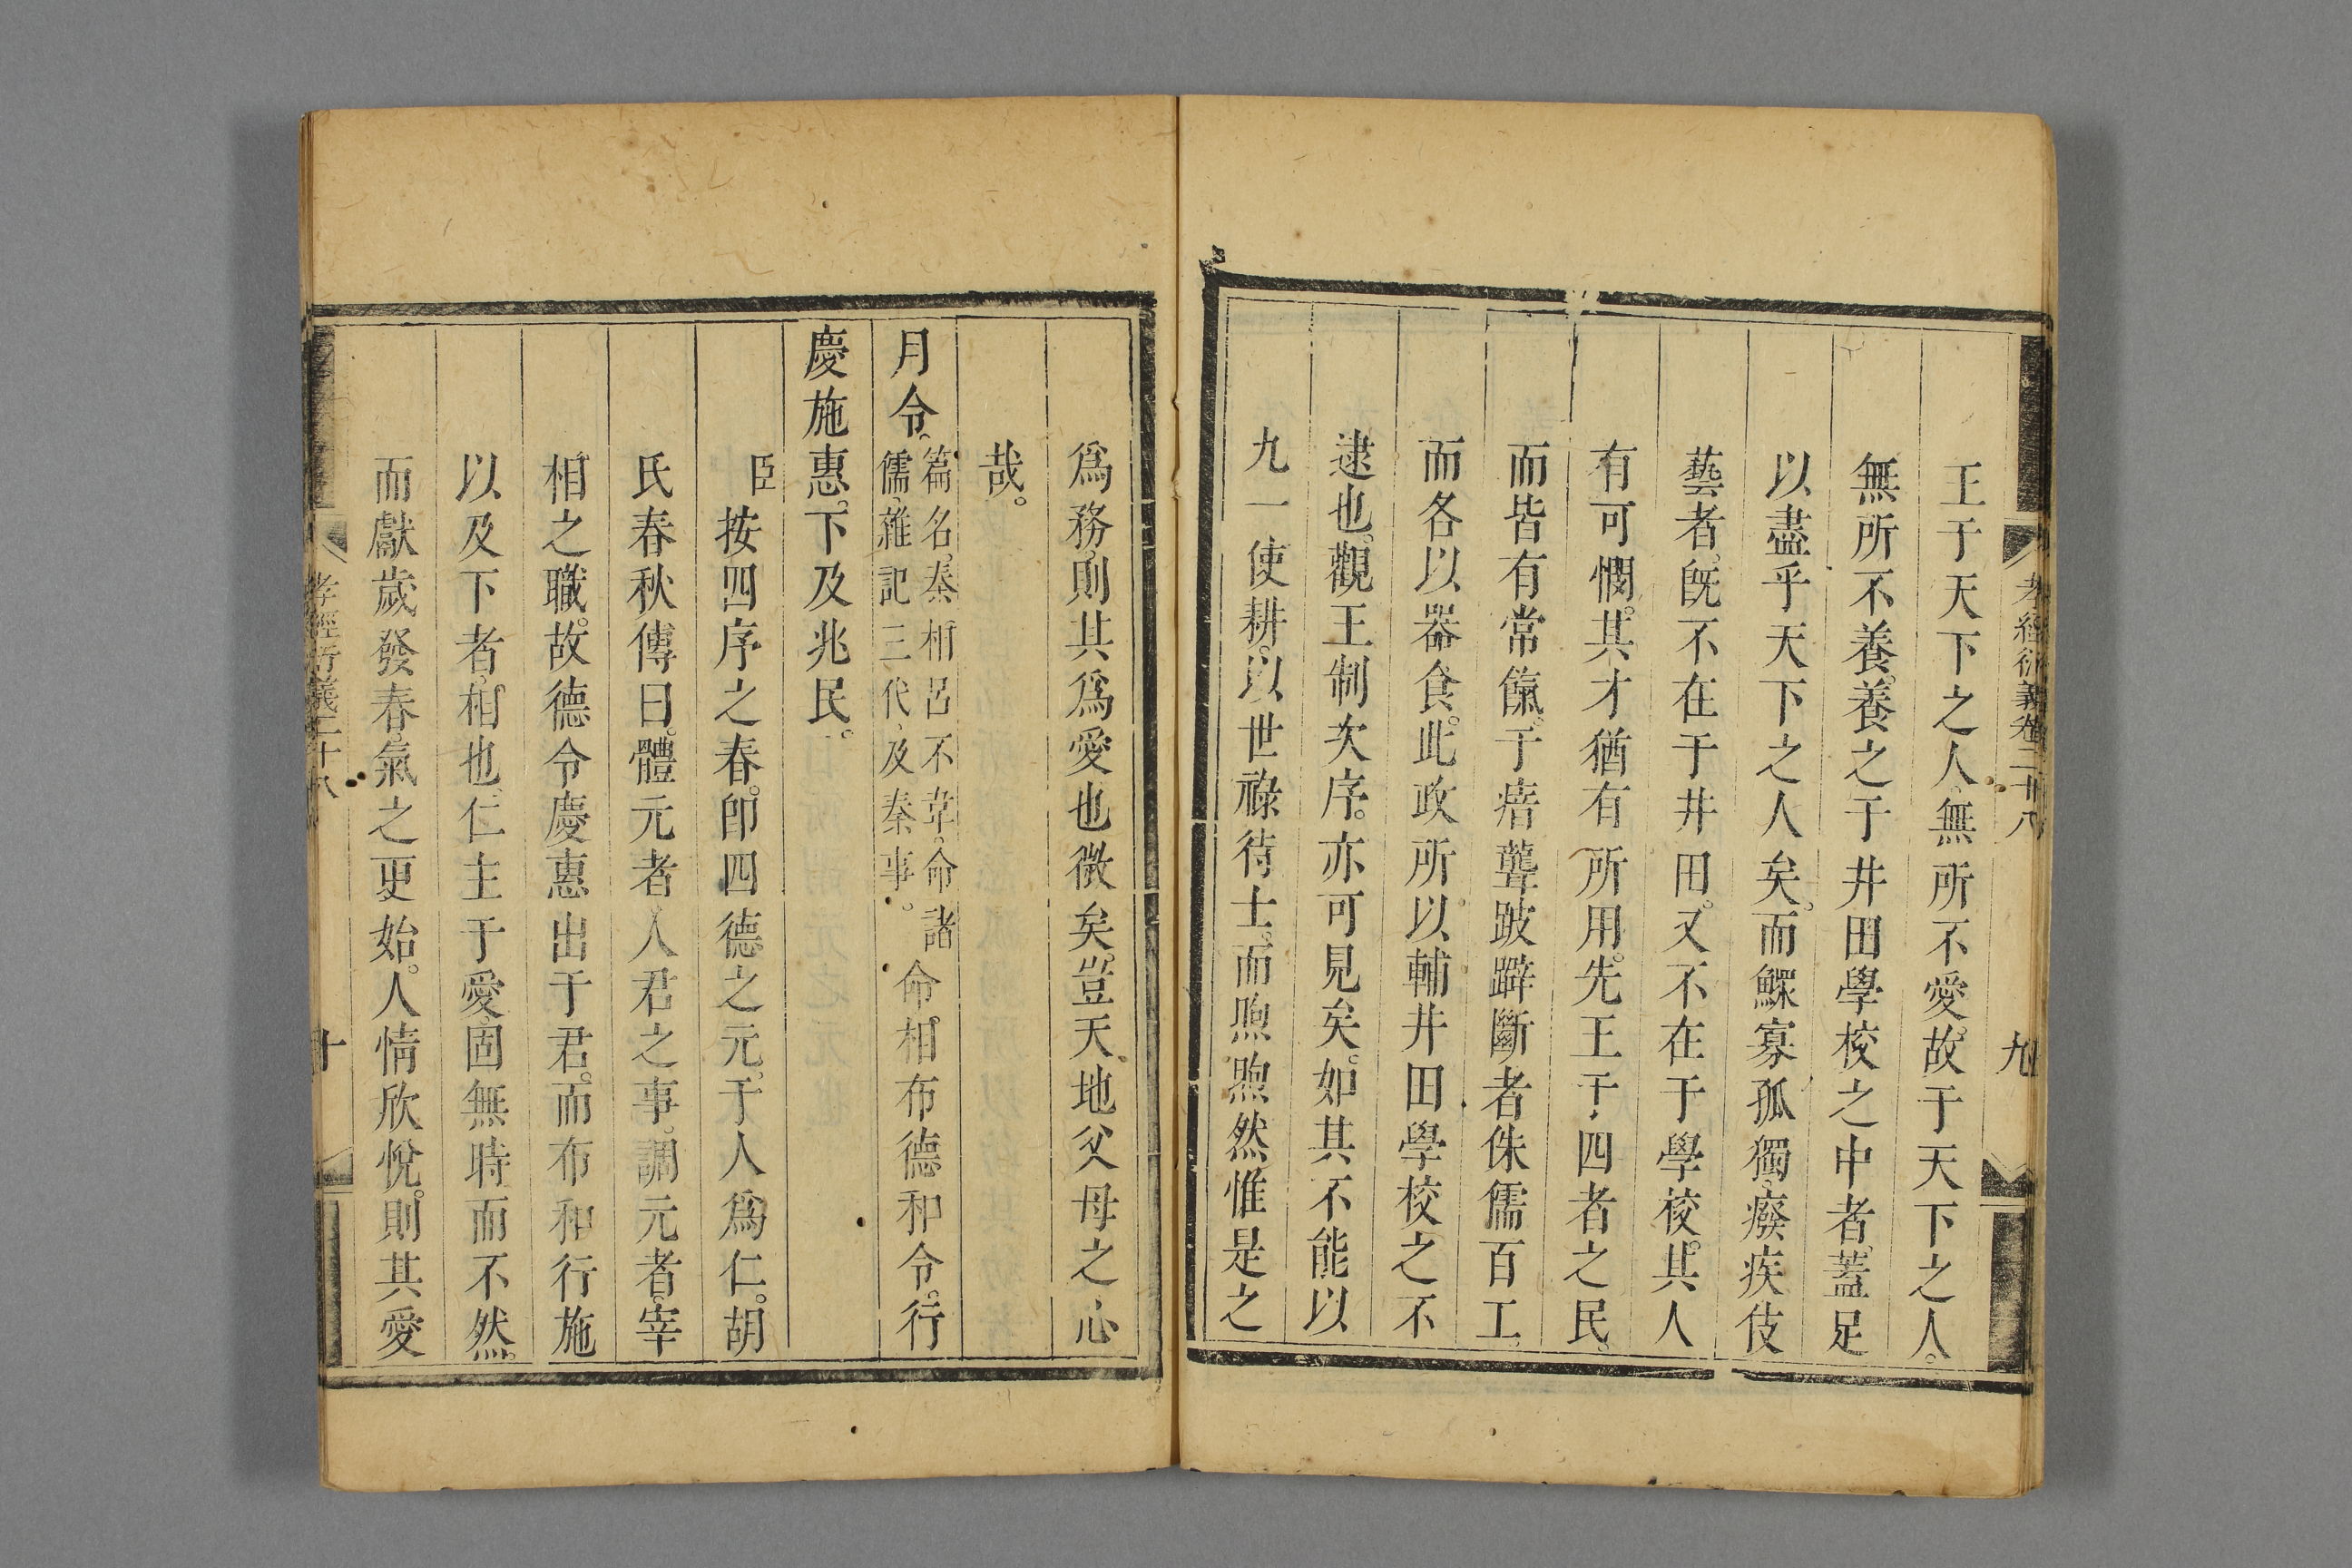 孝經衍義卷二十八 九
王于天下之人、無所不愛。故于天下之人。
無所不養。養之于井田學校之中者、蓋足
以盡乎天下之人矣。而鰥寡孤獨、癈疾伎
藝者、旣不在于井田。又不在于學校。其人
有可憫。其才猶有所用。先王于四者之民。
而皆有常餼。于瘖聾跛躃斷者侏儒百工、
而各以器食。此政所以輔井田學校之不
逮也。觀王制次序。亦可見矣。如其不能以
九一使耕。以世祿待士。而煦煦然惟是之
爲務、則其爲愛也微矣。豈天地父母之心
哉。
月令。篇名、秦相呂不韋。命諸儒、雜記三代、及秦事。命相布德和令。行
慶施惠。下及兆民。
臣按四序之春。卽四德之元。于人爲仁。胡
氏春秋傳曰。體元者、人君之事。調元者。宰
相之職。故德令慶惠出于君。而布和行施
以及下者。相也。仁主于愛。固無時而不然。
而獻歲發春。氣之更始。人情欣悅。則其愛
孝經衍義二十八 十